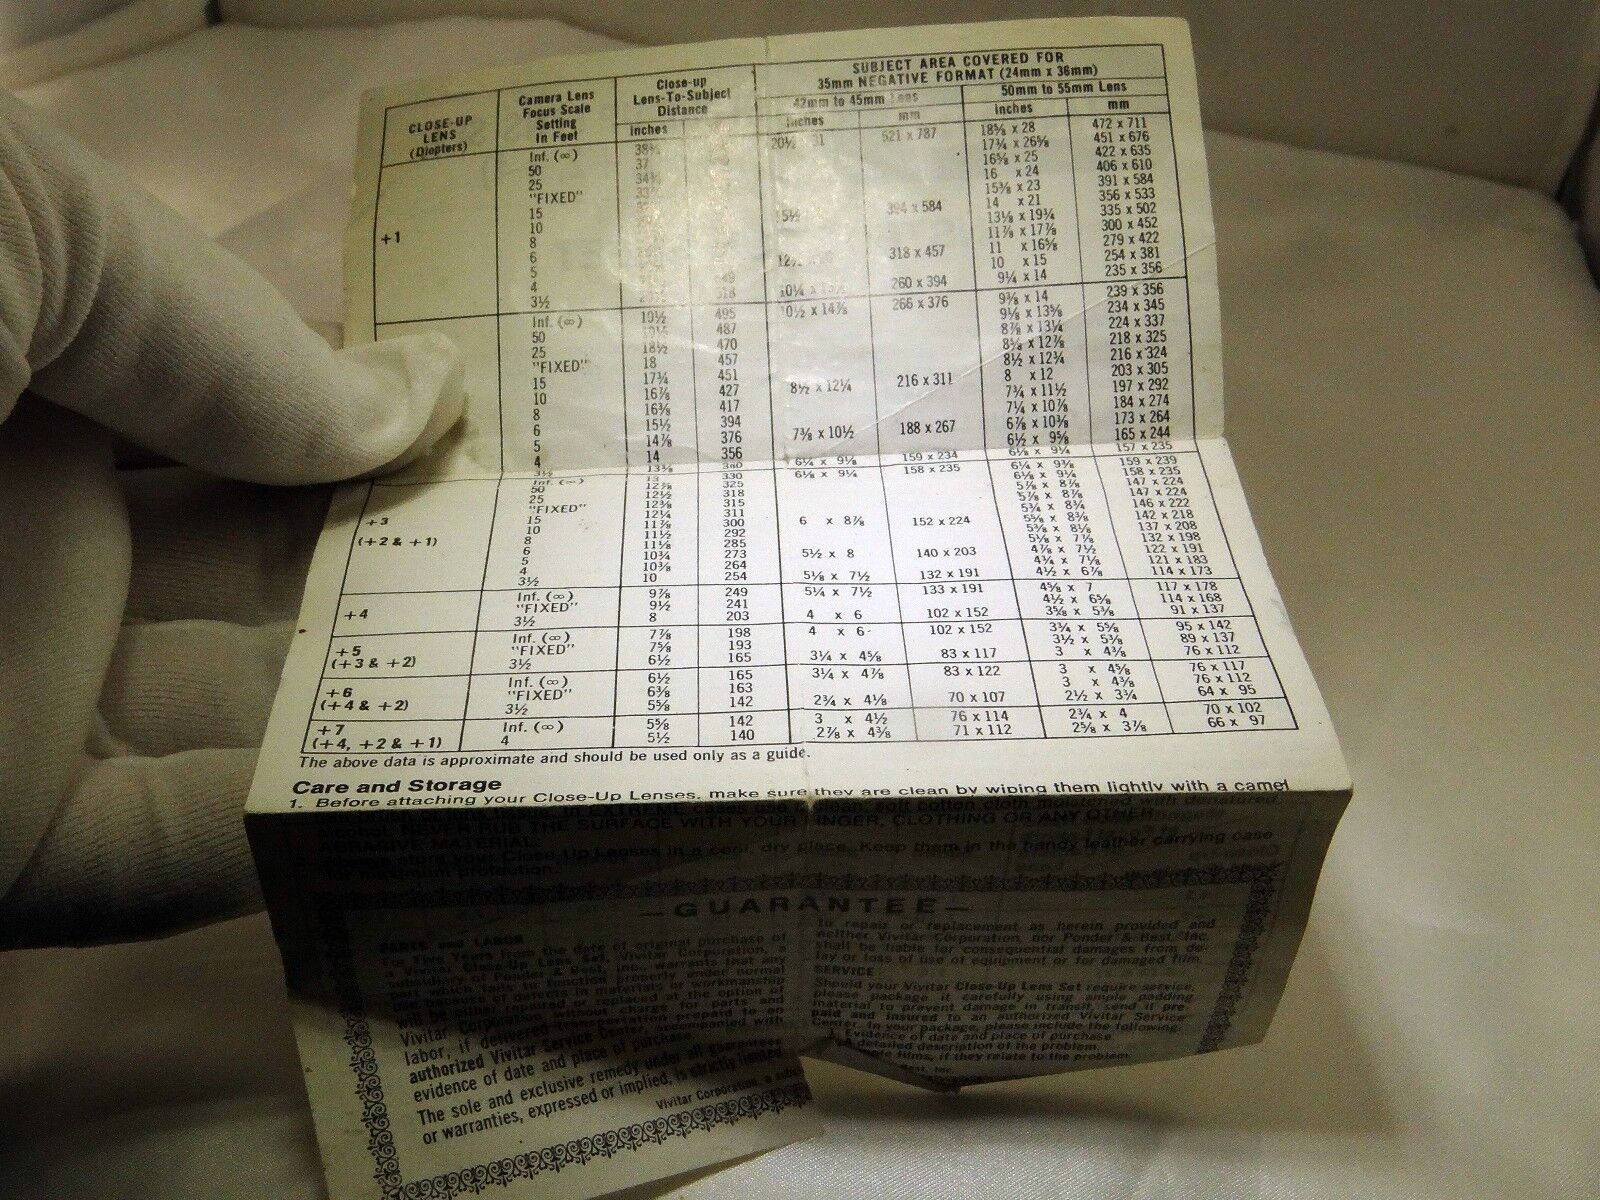 SUBJECT AREA COVERED FOR
35mm NEGATIVE FORMAT (24mm x 36mm)
CLOSE-UP LENS (Diopters) Camera Lens Focus Scale Setting In Feet Close-up Lens-To-Subject Distance 42mm to 45mm Lens 50mm to 55mm Lens
inches inches mm inches mm
+1
Inf. (∞) 20½ 521 x 787 18⅝ x 28 472 x 711
50 37 17¾ x 26⅝ 451 x 676
25 16⅝ x 25 422 x 635
"FIXED" 16 x 24 406 x 610
15 15⅜ x 23 391 x 584
10 394 x 584 14 x 21 356 x 533
8 13⅛ x 19¾ 335 x 502
6 11⅞ x 17⅞ 300 x 452
5 318 x 457 11 x 16⅝ 279 x 422
4 10 x 15 254 x 381
3½ 260 x 394 9¼ x 14 235 x 356
Inf. (∞) 19½ 495 10½ x 14⅞ 266 x 376 9⅜ x 14 239 x 356
50 487 9⅛ x 13⅝ 234 x 345
25 18½ 470 8⅞ x 13¼ 224 x 337
"FIXED" 18 457 8⅝ x 12⅞ 218 x 325
15 17¾ 451 8½ x 12¾ 216 x 324
10 16⅞ 427 8½ x 12¼ 216 x 311 8 x 12 203 x 305
8 16⅜ 417 7¾ x 11½ 197 x 292
6 15½ 394 7¼ x 10⅞ 184 x 274
5 14⅞ 376 7⅜ x 10½ 188 x 267 6⅞ x 10⅜ 173 x 264
4 14 356 6½ x 9⅝ 165 x 244
3½ 13⅜ 340 6¼ x 9⅛ 159 x 234 6⅛ x 9¼ 157 x 235
+3
(+2 & +1)
Inf. (∞) 13 330 6⅛ x 9¼ 158 x 235 6¼ x 9⅜ 159 x 239
50 12⅞ 325 6⅛ x 9¼ 158 x 235
25 12½ 318 5⅞ x 8⅞ 147 x 224
"FIXED" 12⅜ 315 5⅞ x 8⅞ 147 x 224
15 12¼ 311 5¾ x 8¾ 146 x 222
10 11⅞ 300 6 x 8⅞ 152 x 224 5⅝ x 8⅝ 142 x 218
8 11½ 292 5⅜ x 8⅛ 137 x 208
6 11⅛ 285 5⅛ x 7⅞ 132 x 198
5 10¾ 273 5½ x 8 140 x 203 4⅞ x 7½ 122 x 191
4 10⅜ 264 4¾ x 7⅛ 121 x 183
3½ 10 254 5⅛ x 7½ 132 x 191 4½ x 6⅞ 114 x 173
+4
Inf. (∞) 9⅞ 249 5¼ x 7½ 133 x 191 4⅝ x 7 117 x 178
"FIXED" 9½ 241 4½ x 6⅝ 114 x 168
3½ 8 203 4 x 6 102 x 152 3⅝ x 5⅜ 91 x 137
+5
(+3 & +2)
Inf. (∞) 7⅞ 198 4 x 6 102 x 152 3¾ x 5⅝ 95 x 142
"FIXED" 7⅝ 193 3½ x 5⅜ 89 x 137
3½ 6½ 165 3¼ x 4⅝ 83 x 117 3 x 4⅜ 76 x 112
+6
(+4 & +2)
Inf. (∞) 6½ 165 3¼ x 4⅞ 83 x 122 3 x 4⅝ 76 x 117
"FIXED" 6⅜ 163 3 x 4⅜ 76 x 112
3½ 5⅝ 142 2¾ x 4⅛ 70 x 107 2½ x 3¾ 64 x 95
+7
(+4, +2 & +1)
Inf. (∞) 5⅝ 142 3 x 4½ 76 x 114 2¾ x 4 70 x 102
4 5½ 140 2⅞ x 4⅜ 71 x 112 2⅝ x 3⅞ 66 x 97
The above data is approximate and should be used only as a guide.
Care and Storage
1. Before attaching your Close-Up Lenses, make sure they are clean by wiping them lightly with a camel
soft cotton cloth moistened with denatured
alcohol. NEVER RUB THE SURFACE WITH YOUR FINGER, CLOTHING OR ANY OTHER
ABRASIVE MATERIAL.
store your Close-Up Lenses in a cool, dry place. Keep them in the handy leather carrying case
for maximum protection.
—GUARANTEE—
PARTS and LABOR
For Five Years from the date of original purchase of
a Vivitar Close-Up Lens Set, Vivitar Corporation, a
subsidiary of Ponder & Best, Inc., warrants that any
part which fails to function properly under normal
use because of defects in materials or workmanship
will be either repaired or replaced at the option of
Vivitar Corporation without charge for parts and
labor, if delivered transportation prepaid to an
authorized Vivitar Service Center, accompanied with
evidence of date and place of purchase.
The sole and exclusive remedy under all guarantees
or warranties, expressed or implied, is strictly limited
to repair or replacement as herein provided and
neither Vivitar Corporation, nor Ponder & Best, Inc.
shall be liable for consequential damages from de-
lay or loss of use of equipment or for damaged film.
SERVICE
Should your Vivitar Close-Up Lens Set require service,
please package it carefully using ample padding
material to prevent damage in transit, send it pre-
paid and insured to an authorized Vivitar Service
Center. In your package, please include the following:
Evidence of date and place of purchase.
A detailed description of the problem.
films, if they relate to the problem.
Vivitar Corporation, a
Best, Inc.